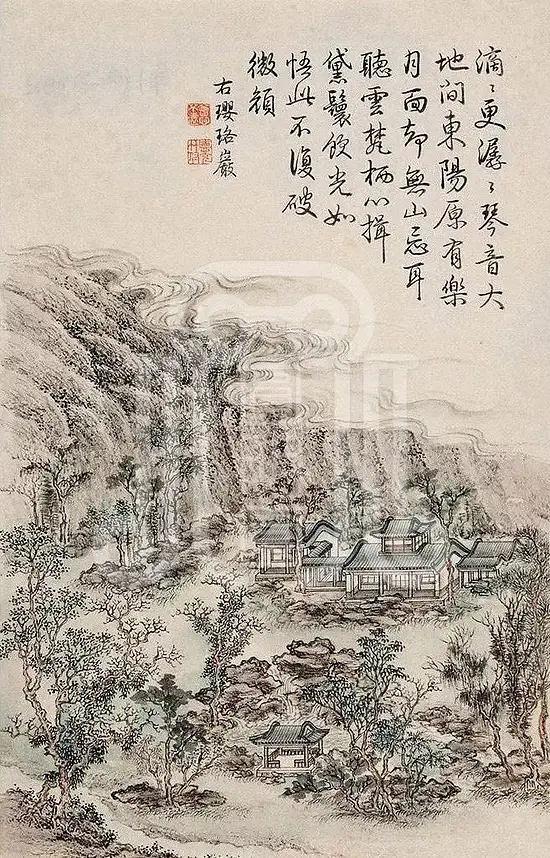 滴〻更潺〻琴音大
地間東陽原有樂
月面却無山忘耳
聽雲梵栖心揖
黛鬟飲光如
悟此不復破
微顏
右瓔珞巖